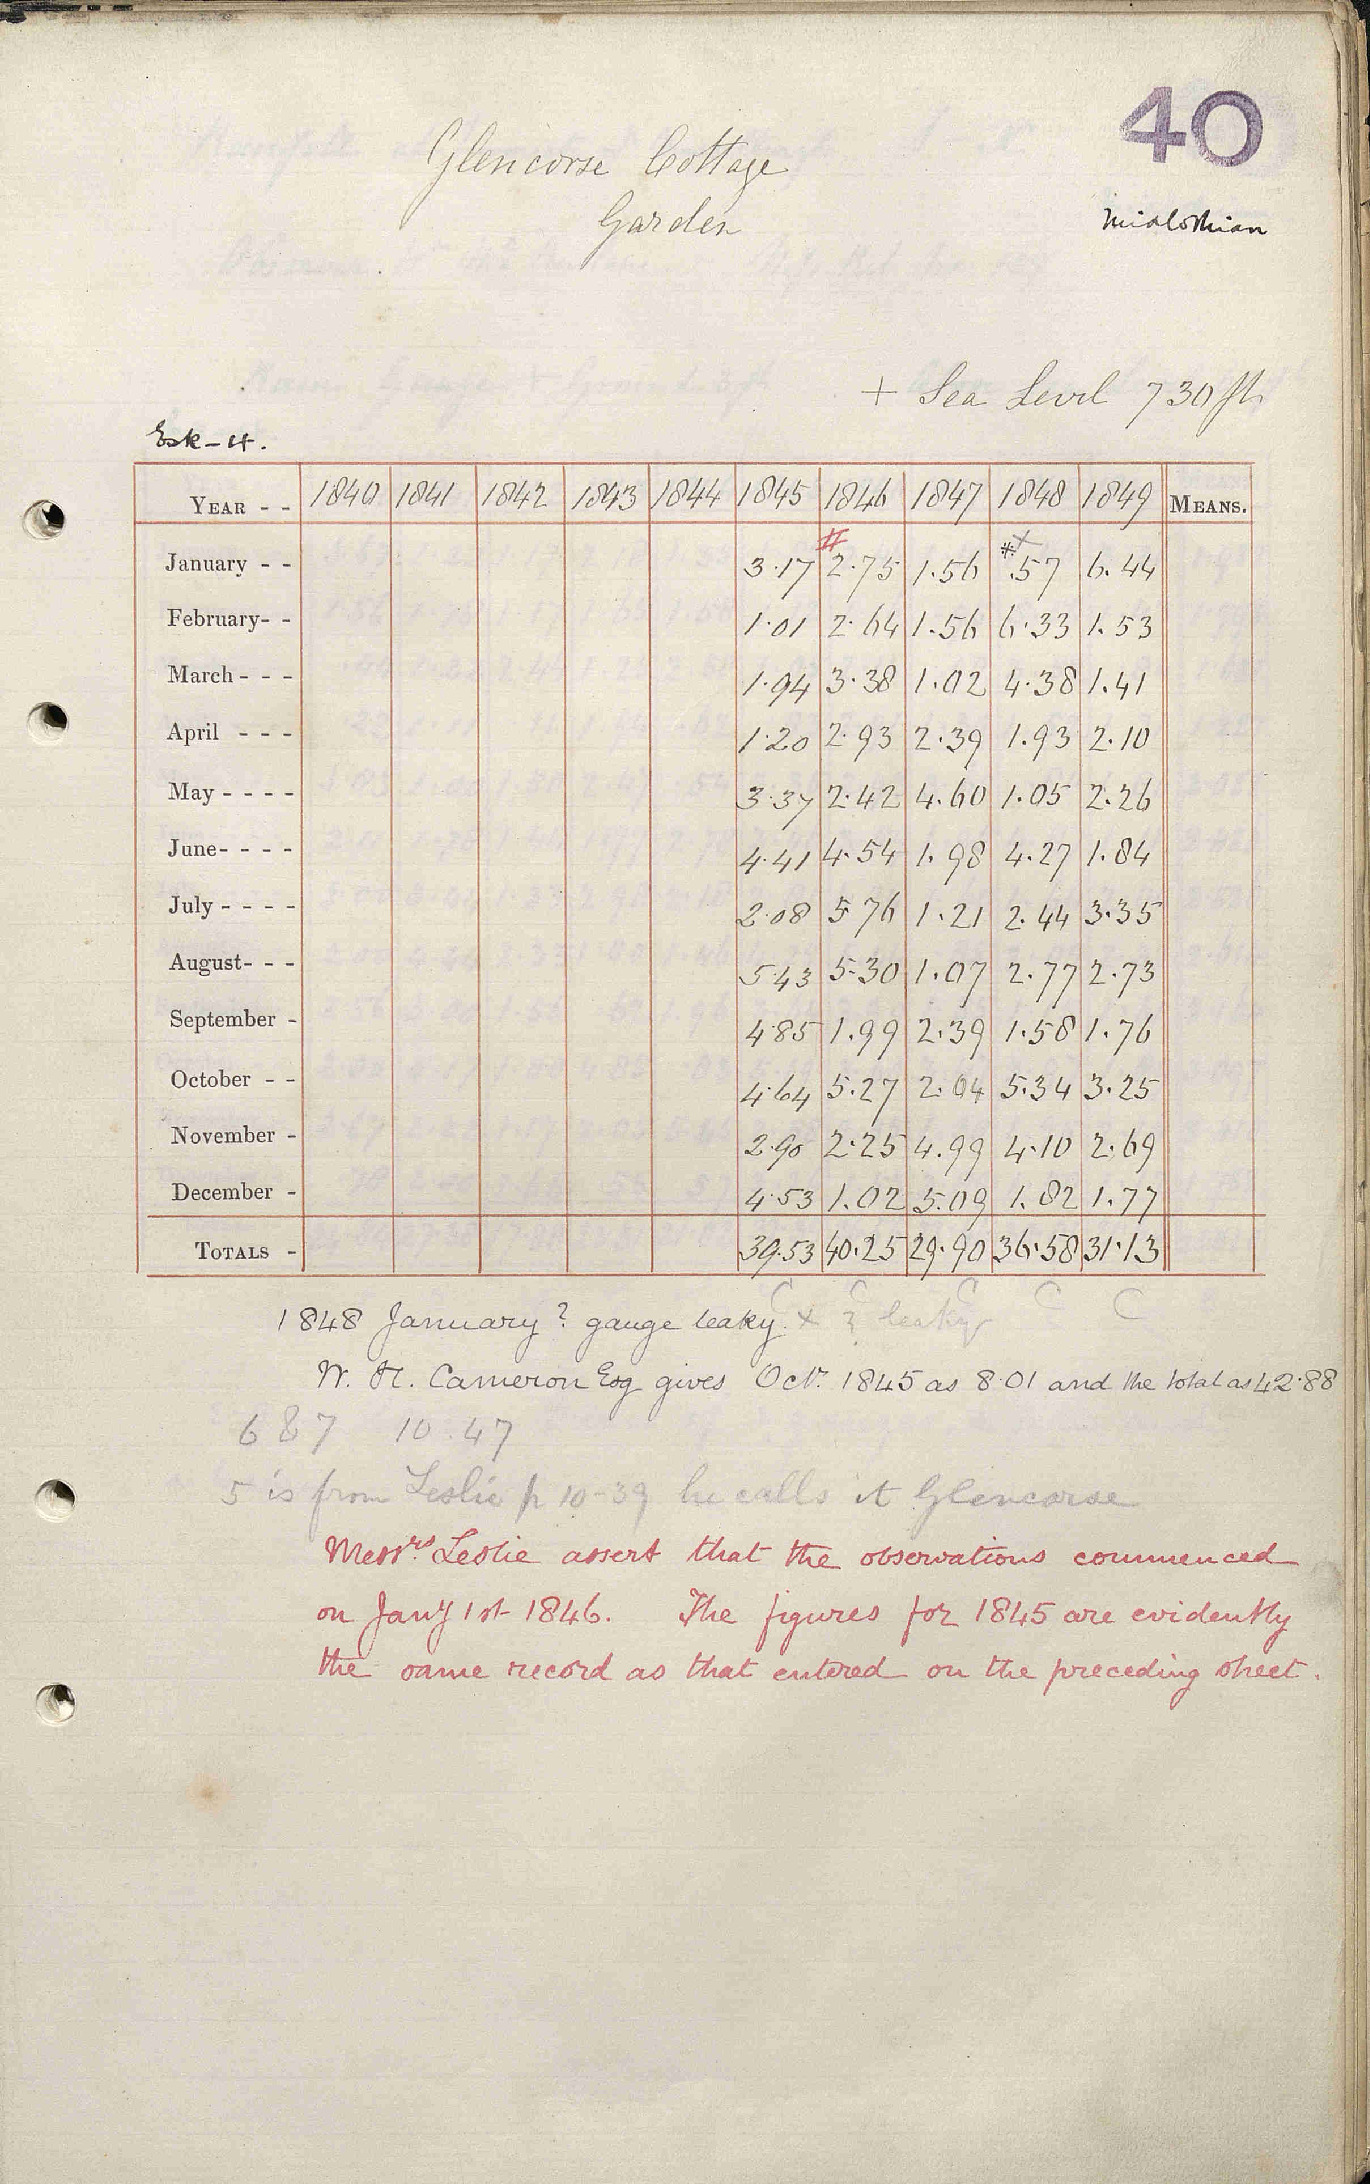 40
Glencorse Cottage
Garden
Midlothian
+ Sea Level 730 ft
Esk - 4.
YEAR - - 1840 1841 1842 1843 1844 1845 1846 1847 1848 1849 MEANS.
January - - 3.17 #2.75 1.56 *x.57 6.44
February- - 1.01 2.64 1.56 6.33 1.53
March - - - 1.94 3.38 1.02 4.38 1.41
April - - - 1.20 2.93 2.39 1.93 2.10
May - - - - 3.37 2.42 4.60 1.05 2.26
June- - - - 4.41 4.54 1.98 4.27 1.84
July - - - - 2.08 5.76 1.21 2.44 3.35
August- - - 5.43 5.30 1.07 2.77 2.73
September - 4.85 1.99 2.39 1.58 1.76
October - - 4.64 5.27 2.04 5.34 3.25
November - 2.90 2.25 4.99 4.10 2.69
December - 4.53 1.02 5.09 1.82 1.77
TOTALS - 39.53 40.25 29.90 36.58 31.13
C C C C C
1848 January ? gauge leaky. x ? leaky
W. H. Cameron Esq gives Oct. 1845 as 8.01 and the total as 42.88
6 8 7 10.47
5 is from Leslie p 10-39 he calls it Glencorse
Messrs. Leslie assert that the observations commenced
on Jany 1st 1846. The figures for 1845 are evidently
the same record as that entered on the preceding sheet.